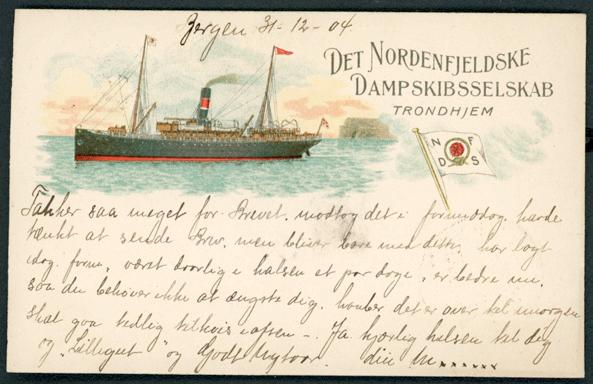 Bergen 31-12-04.
DET NORDENFJELDSKE
DAMPSKIBSSELSKAB
TRONDHJEM
N F
D S
Takker saa meget for Brevet. modtog det i formiddag. havde
tænkt at sende Brev. men bliver bare med dette, har
idag. været daarlig i halsen et par dage, er bedre nu.
saa du behøver ikke at ængste dig. haaber det er over til imorgen
skal gaa tidlig tilkøis iaften -. Ja kjærlig hilsen til dig
og "Lillegut" og Godt Nytaar. din M.......